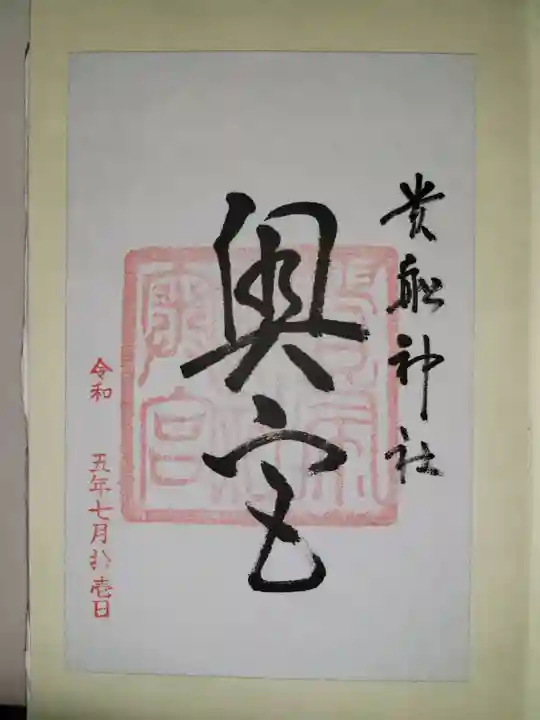 貴船神社
奥宮
令和 五年七月拾壱日